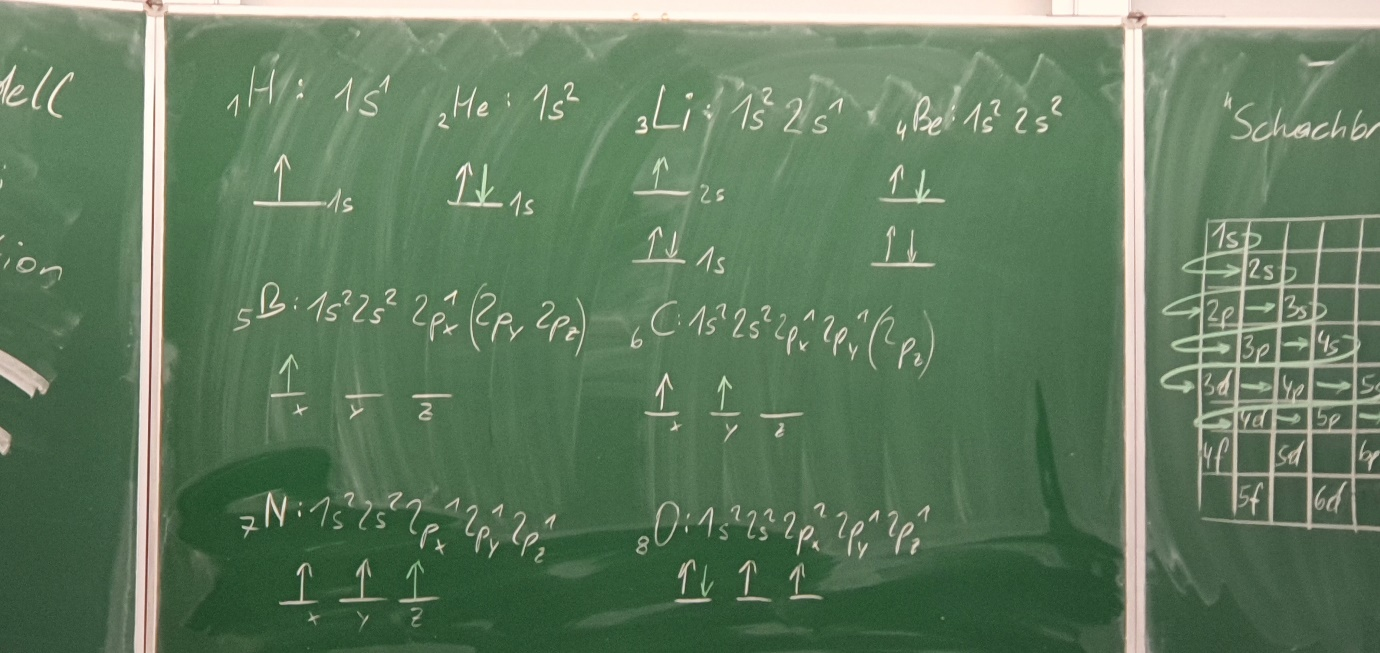 dell
ion
₁H: 1s¹ ₂He: 1s² ₃Li: 1s² 2s¹ ₄Be: 1s² 2s²
↑ 1s ↑↓ 1s ↑ 2s ↑↓
↑↓ 1s ↑↓
₅B: 1s² 2s² 2pₓ¹ (2p_y 2p_z) ₆C: 1s² 2s² 2pₓ¹ 2p_y¹ (2p_z)
↑ ↑ ↑
x y z x y z
₇N: 1s² 2s² 2pₓ¹ 2p_y¹ 2p_z¹ ₈O: 1s² 2s² 2pₓ² 2p_y¹ 2p_z¹
↑ ↑ ↑ ↑↓ ↑ ↑
x y z
"Schachbr
1s
→ 2s
2p → 3s
3p → 4s
3d → 4p → 5s
4d → 5p →
4f 5d 6p
5f 6d